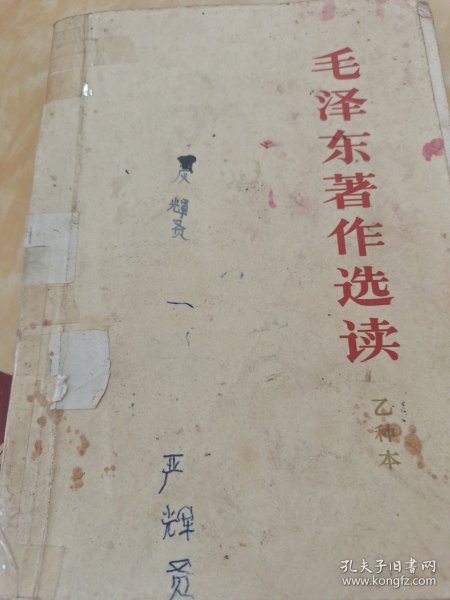 毛泽东著作选读
乙种本
輝
一
严辉
孔夫子旧书网
www.kongfz.com